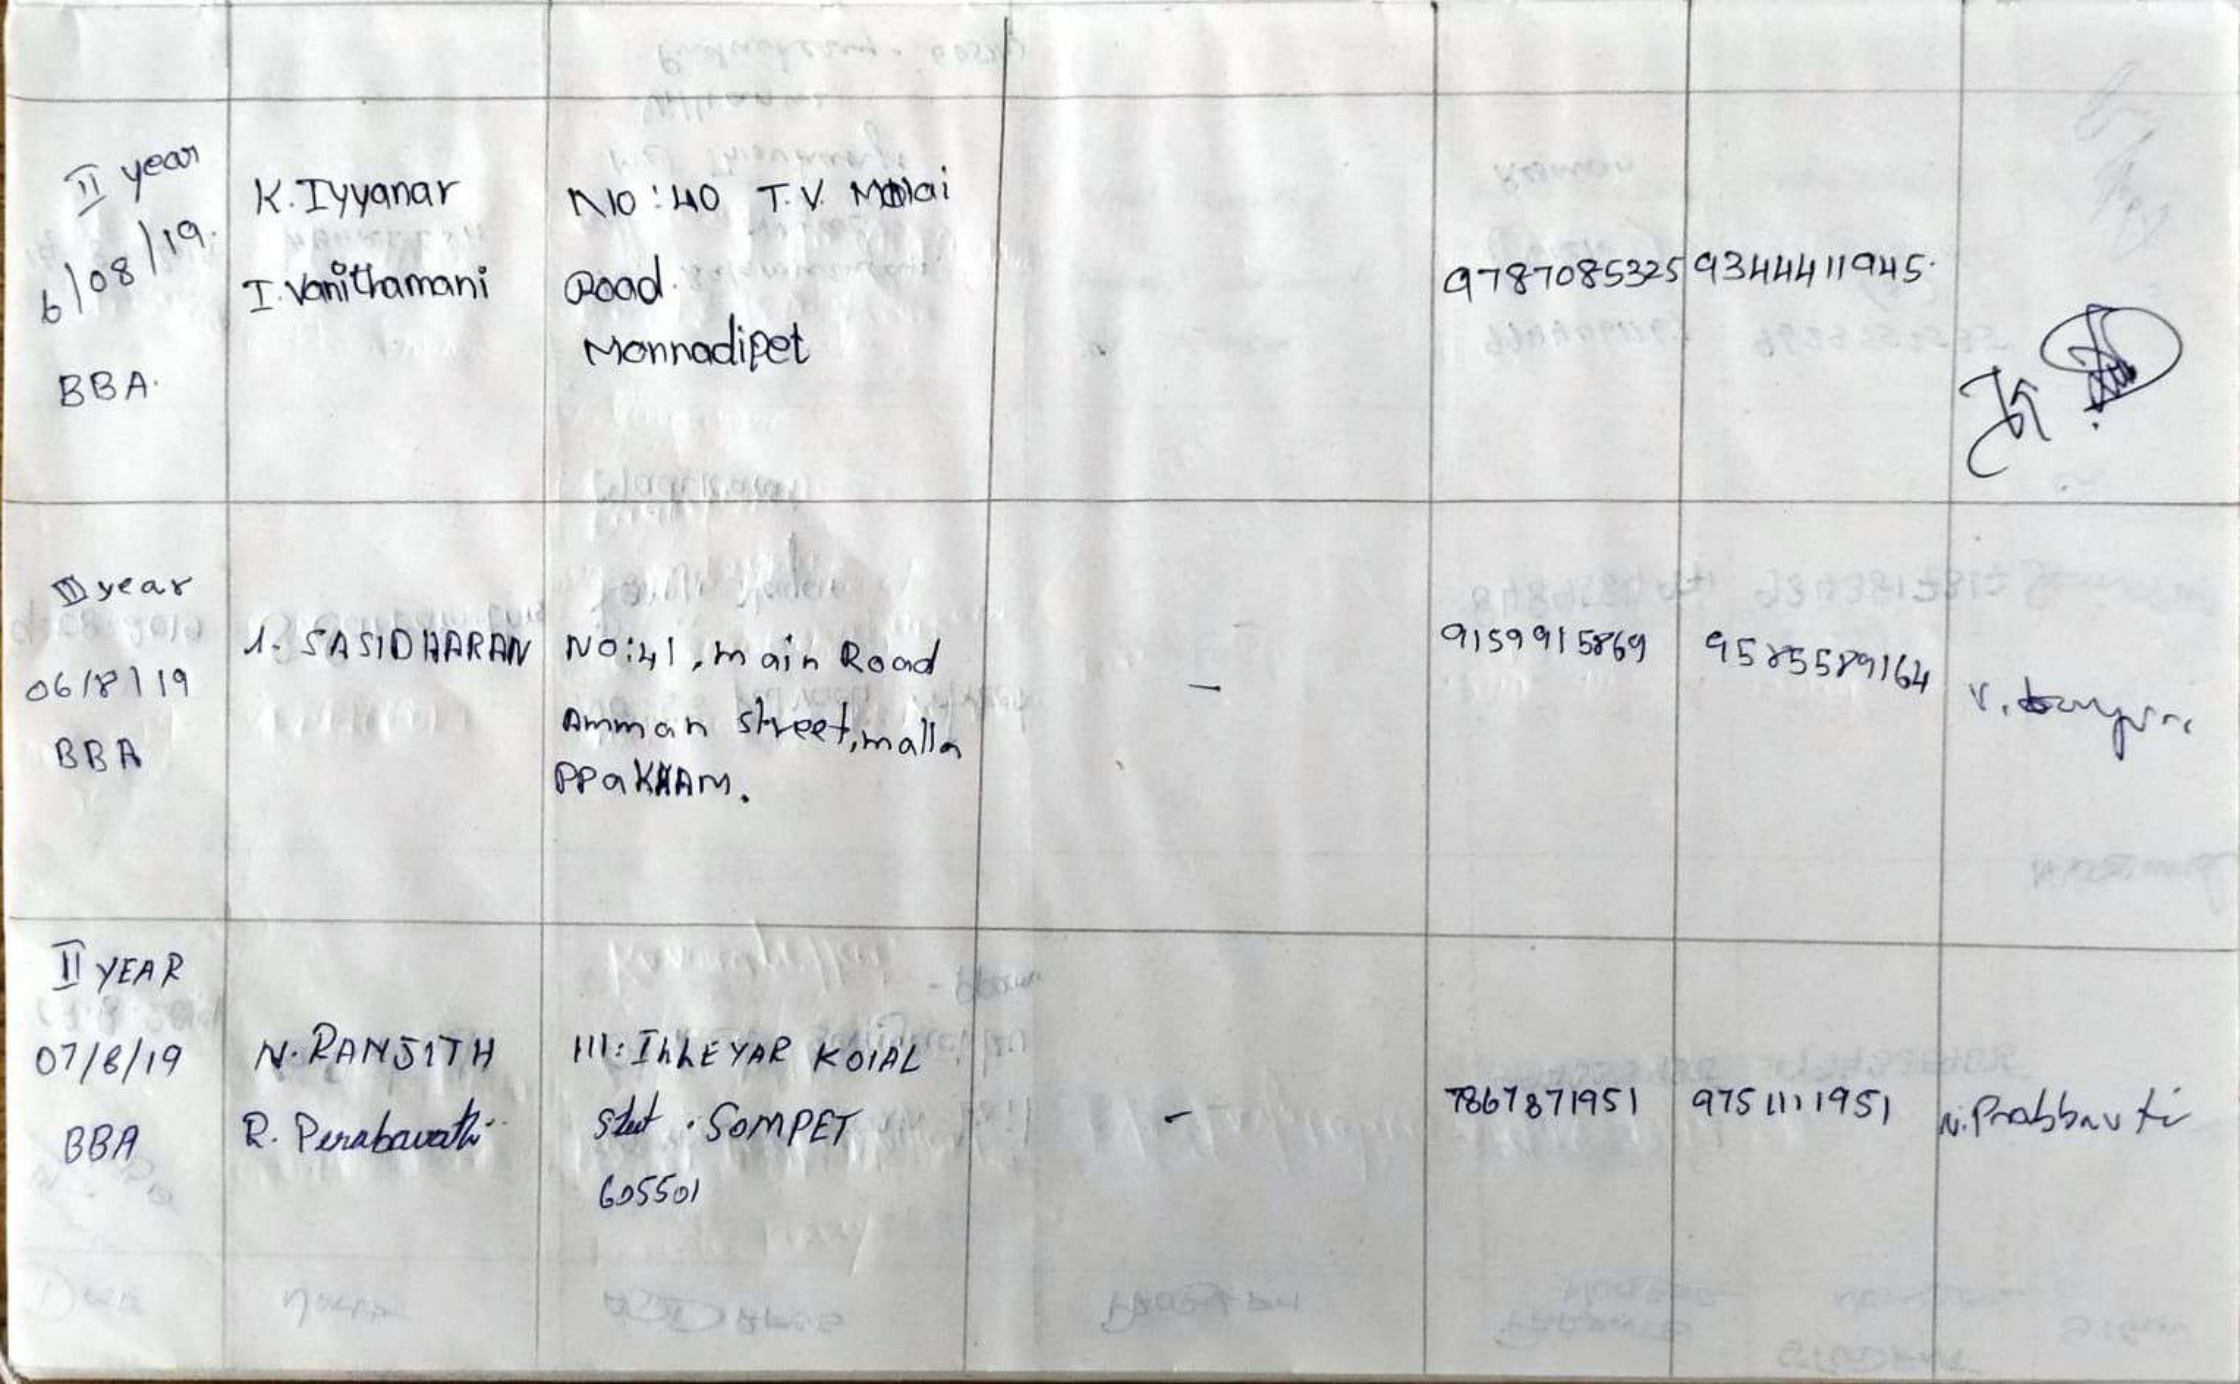 II year
6/08/19.
BBA.
K. Iyyanar
I. Vanithamani
NO:40 T.V. Malai
Road.
Mannadipet
9787085325
9344411945.
II year
06/8/19
BBA
1. SASIDHARAN
NO:41, main Road
Amman street, malla
PPaKKAM.
-
9159915869
9585589164
II YEAR
07/8/19
BBA
N. RANJITH
R. Perabavathi
111: ILLEYAR KOIAL
Steet . SOMPET
605501
-
7867871951
9751111951
N. Prabbavti